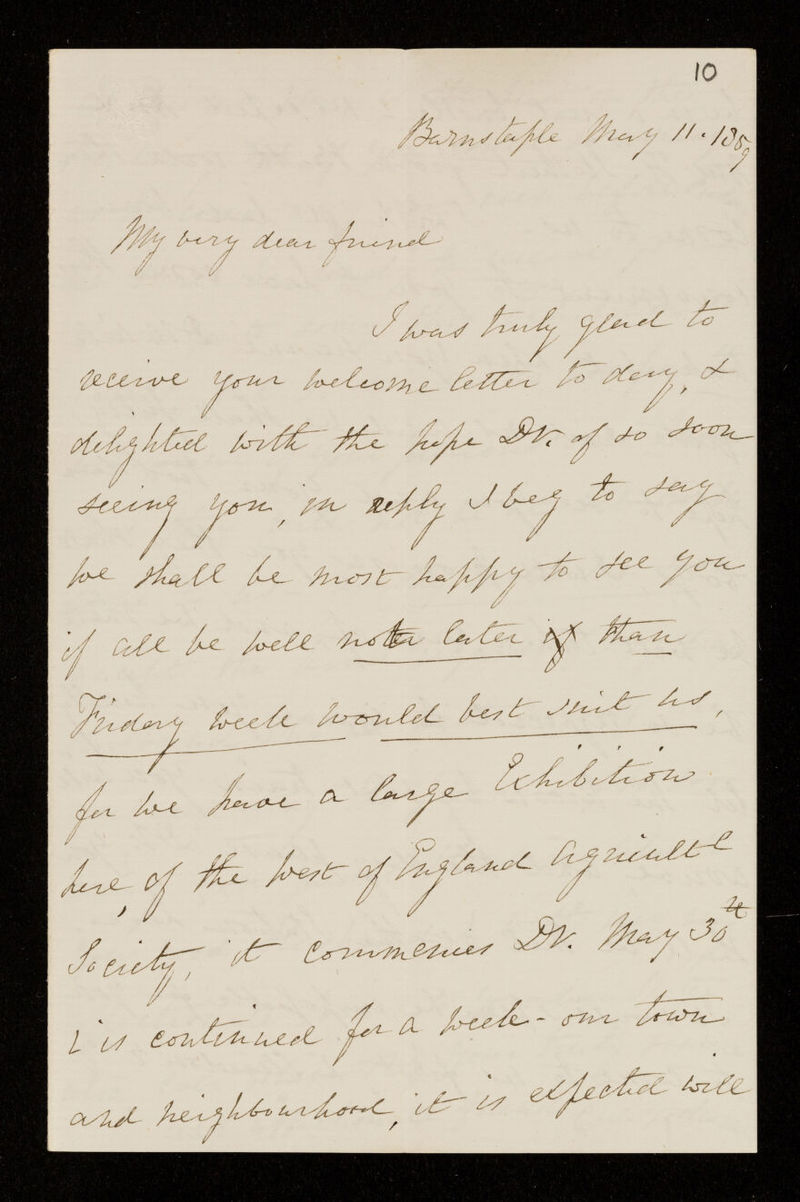 10
Barnstaple May 11. 1859
My very dear friend
I was truly glad to
receive your welcome letter to day, &
delighted with the hope DV. of so soon
seeing you, in reply I beg to say
we shall be most happy to see you
if all be well not later if than
Friday week would best suit us,
for we have a large Exhibition
here, of the West of England Agricultl
Society, it commences DV. May 30th
& is continued for a week - our town
and neighbourhood, it is expected will